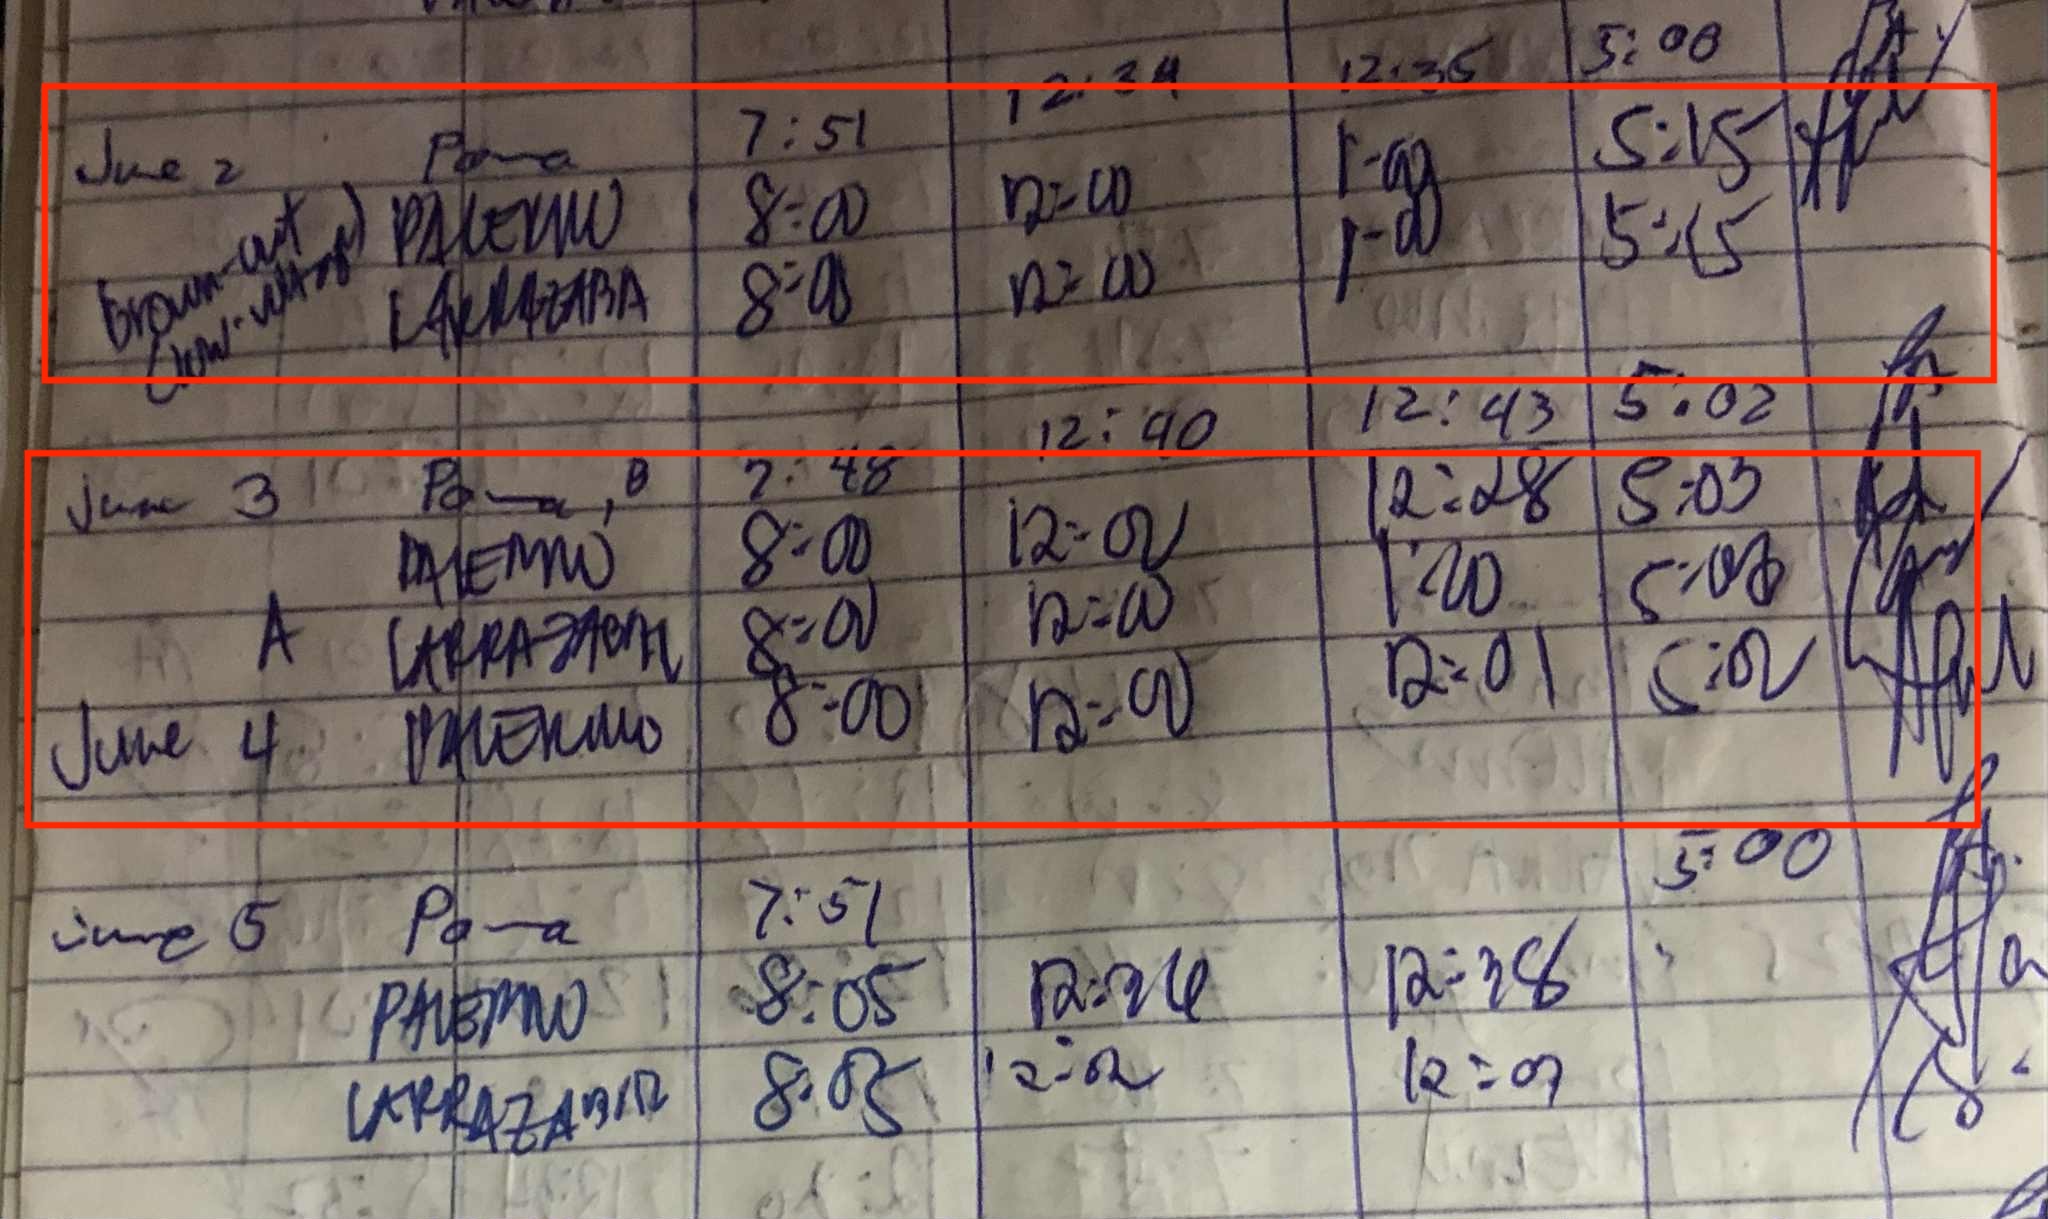 June 2 Pama 7:51 12:34 12:35 5:00
Brown-out PALERMO 8:00 12:00 1-00 5:15
LARRAZABA 8:00 12:00 1-00 5:15
June 3 Pama, B 7:48 12:40 12:43 5:02
PALERMO 8:00 12:02 12:28 5:03
A LARRAZABAL 8:00 12:00 1:20 5:03
June 4 PALERMO 8:00 12:00 12:01 5:02
June 5 Pama 7:51 5:00
PALERMO 8:05 12:34 12:38
LARRAZABAL 8:05 12:02 12:07